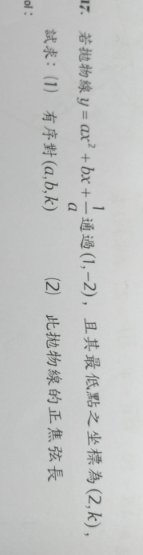 17. 若拋物線 y = ax² + bx + 1/a 通過(1,−2)，且其最低點之坐標為(2,k)，
試求：(1) 有序對(a,b,k) (2) 此拋物線的正焦弦長
ol：